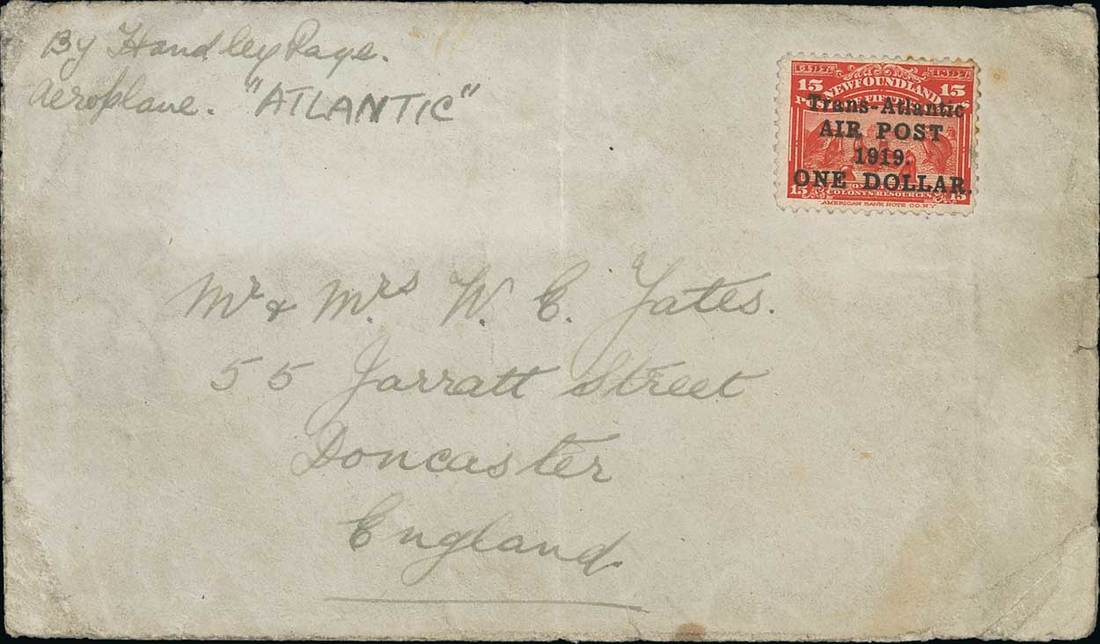 By Handley Page.
Aeroplane. "ATLANTIC"
1497 1897
15 NEWFOUNDLAND 15
Trans-Atlantic
AIR POST
1919.
ONE DOLLAR.
15 COLONY'S RESOURCES 15
AMERICAN BANK NOTE CO. N.Y.
Mr & Mrs W. C. Yates.
55 Jarratt Street
Doncaster
England.